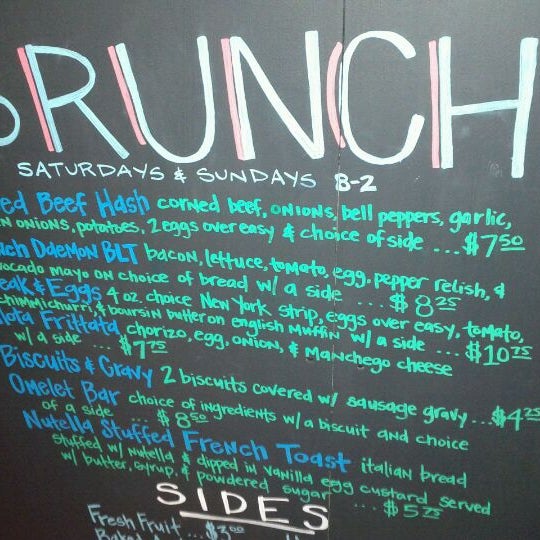 BRUNCH
SATURDAYS & SUNDAYS 8-2
Beef Hash corned beef, onions, bell peppers, garlic,
onions, potatoes, 2 eggs over easy & choice of side ... $7.50
Daemon BLT bacon, lettuce, tomato, egg, pepper relish, &
avocado mayo on choice of bread w/ a side ... $8.25
& Eggs 4 oz. choice New York strip, eggs over easy, tomato,
chimmichurri, & boursin butter on english muffin w/ a side ... $10.75
Frittata, chorizo, egg, onion, & manchego cheese
w/ a side ... $7.75
Biscuits & Gravy 2 biscuits covered w/ sausage gravy ... $4.25
Omelet Bar choice of ingredients w/ a biscuit and choice
of a side ... $8.50
Nutella Stuffed French Toast italian bread
stuffed w/ nutella & dipped in vanilla egg custard served
w/ butter, syrup, & powdered sugar ... $5.75
SIDES
Fresh Fruit ... $3.00